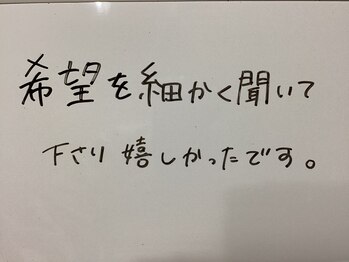 希望を細かく聞いて
下さり嬉しかったです。